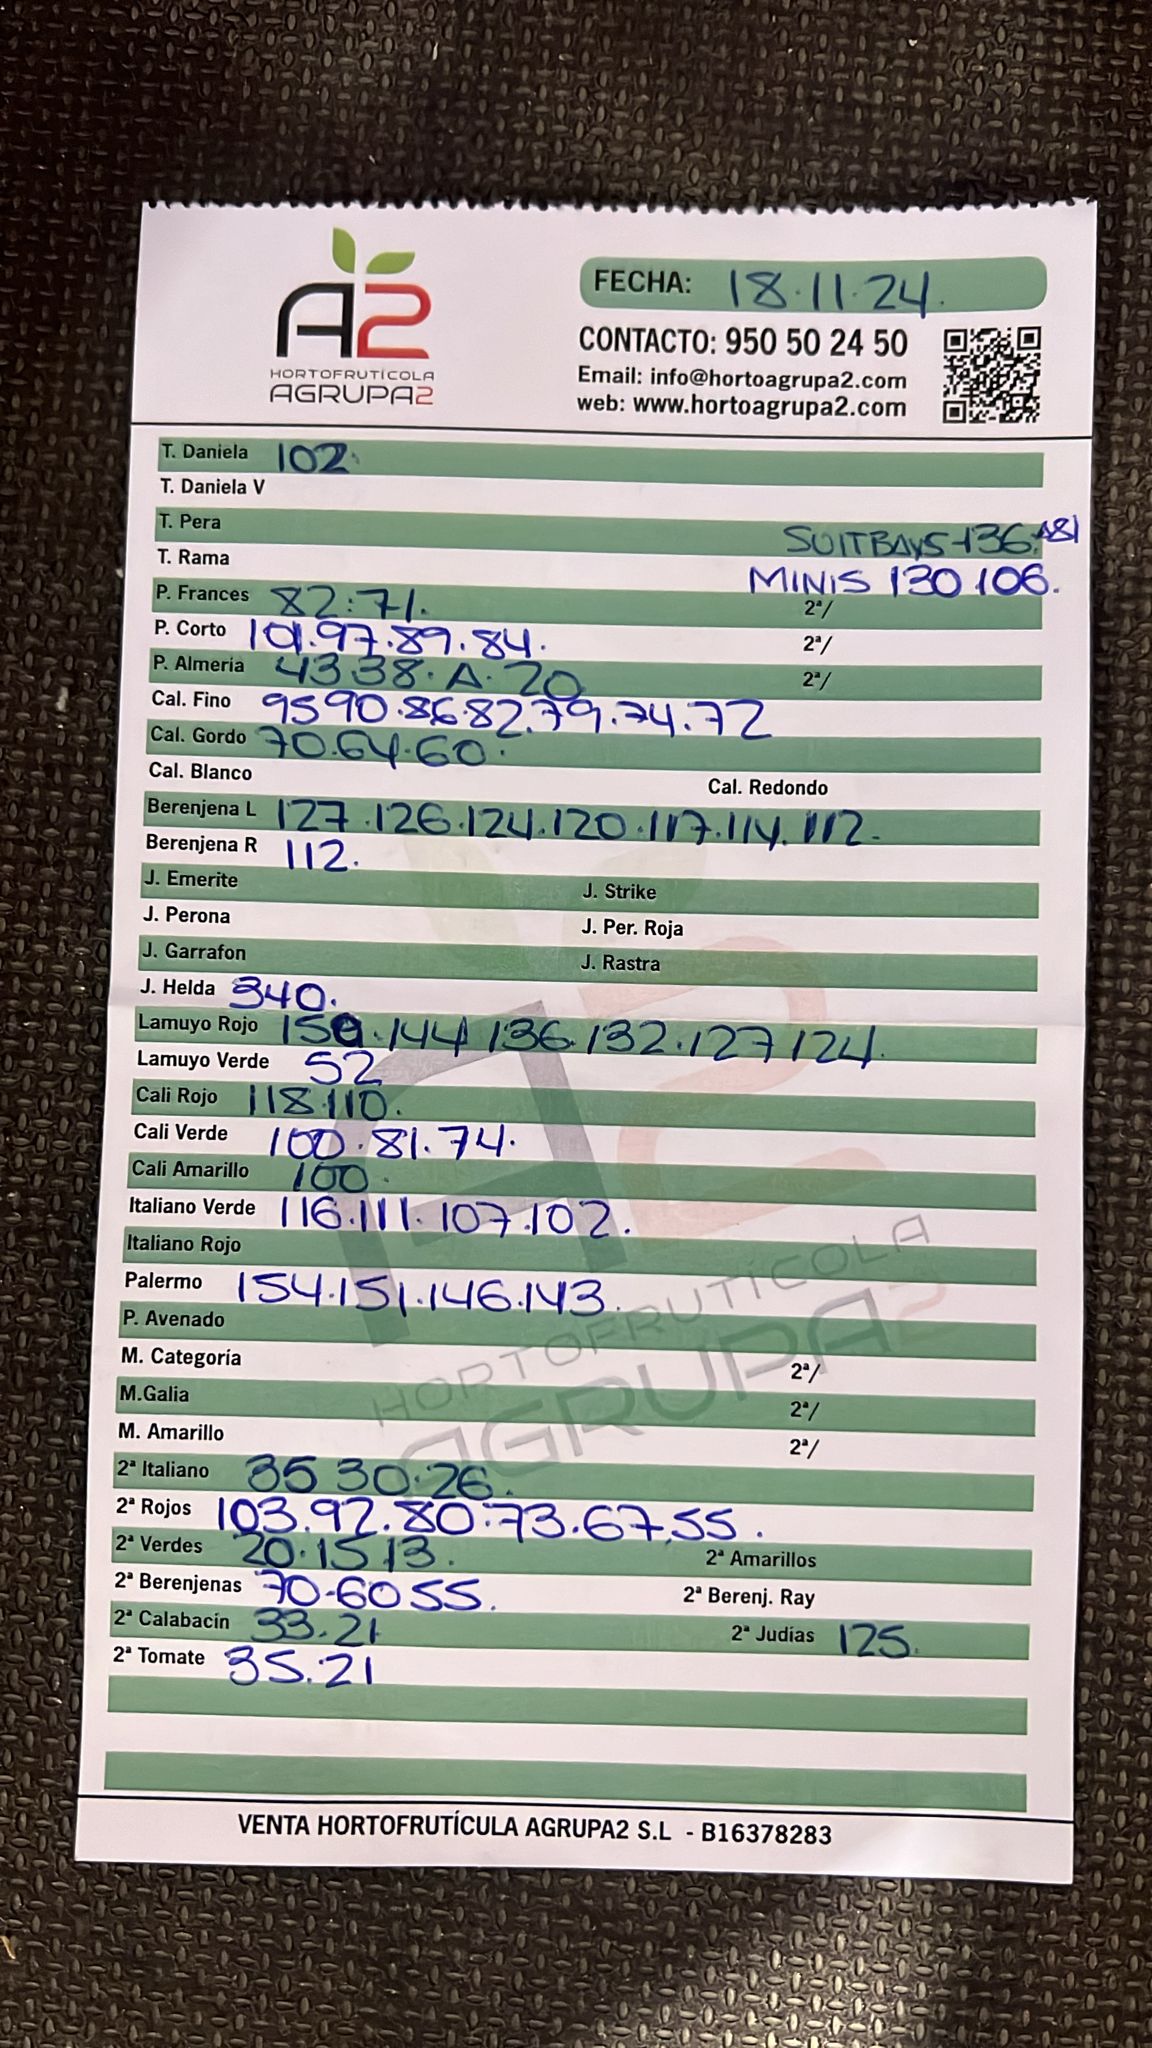 A2
HORTOFRUTÍCOLA
AGRUPA2
FECHA: 18.11.24.
CONTACTO: 950 50 24 50
Email: info@hortoagrupa2.com
web: www.hortoagrupa2.com
T. Daniela 102.
T. Daniela V
T. Pera
SUITBAYS-136.
T. Rama
MINIS 130 106.
P. Frances 82.71. 2ª/
P. Corto 101.97.89.84. 2ª/
P. Almeria 43.38.A.20 2ª/
Cal. Fino 95 90.86.82.79.74.72
Cal. Gordo 70.64.60.
Cal. Blanco Cal. Redondo
Berenjena L 127.126.124.120.117.114.112.
Berenjena R 112.
J. Emerite J. Strike
J. Perona J. Per. Roja
J. Garrafon J. Rastra
J. Helda 340.
Lamuyo Rojo 150.144 136.132.127 124.
Lamuyo Verde 52
Cali Rojo 118.110.
Cali Verde 100.81.74.
Cali Amarillo 100.
Italiano Verde 116.111.107.102.
Italiano Rojo
Palermo 154.151.146.143.
P. Avenado
M. Categoría 2ª/
M.Galia 2ª/
M. Amarillo 2ª/
HORTOFRUTÍCOLA
AGRUPA2
2ª Italiano 35 30.26.
2ª Rojos 103.92.80.73.67.55.
2ª Verdes 20.15.13. 2ª Amarillos
2ª Berenjenas 70-60 55. 2ª Berenj. Ray
2ª Calabacín 33.21 2ª Judías 125.
2ª Tomate 35.21
VENTA HORTOFRUTÍCULA AGRUPA2 S.L - B16378283